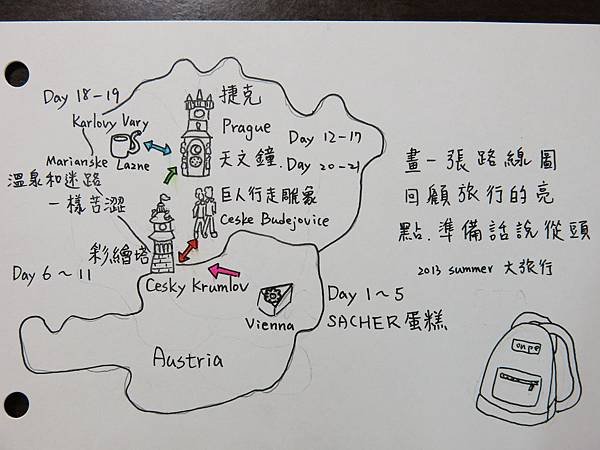 Day 18-19
Karlovy Vary
Marianske Lazne
溫泉和迷路
一樣苦澀
捷克
Prague
天文鐘.
Day 12-17
Day 20-21
巨人行走雕象
Ceske Budejovice
彩繪塔
Day 6~11
Cesky Krumlov
Vienna
Day 1~5
SACHER蛋糕
Austria
畫一張路線圖
回顧旅行的亮
點.準備話說從頭
2013 summer 大旅行